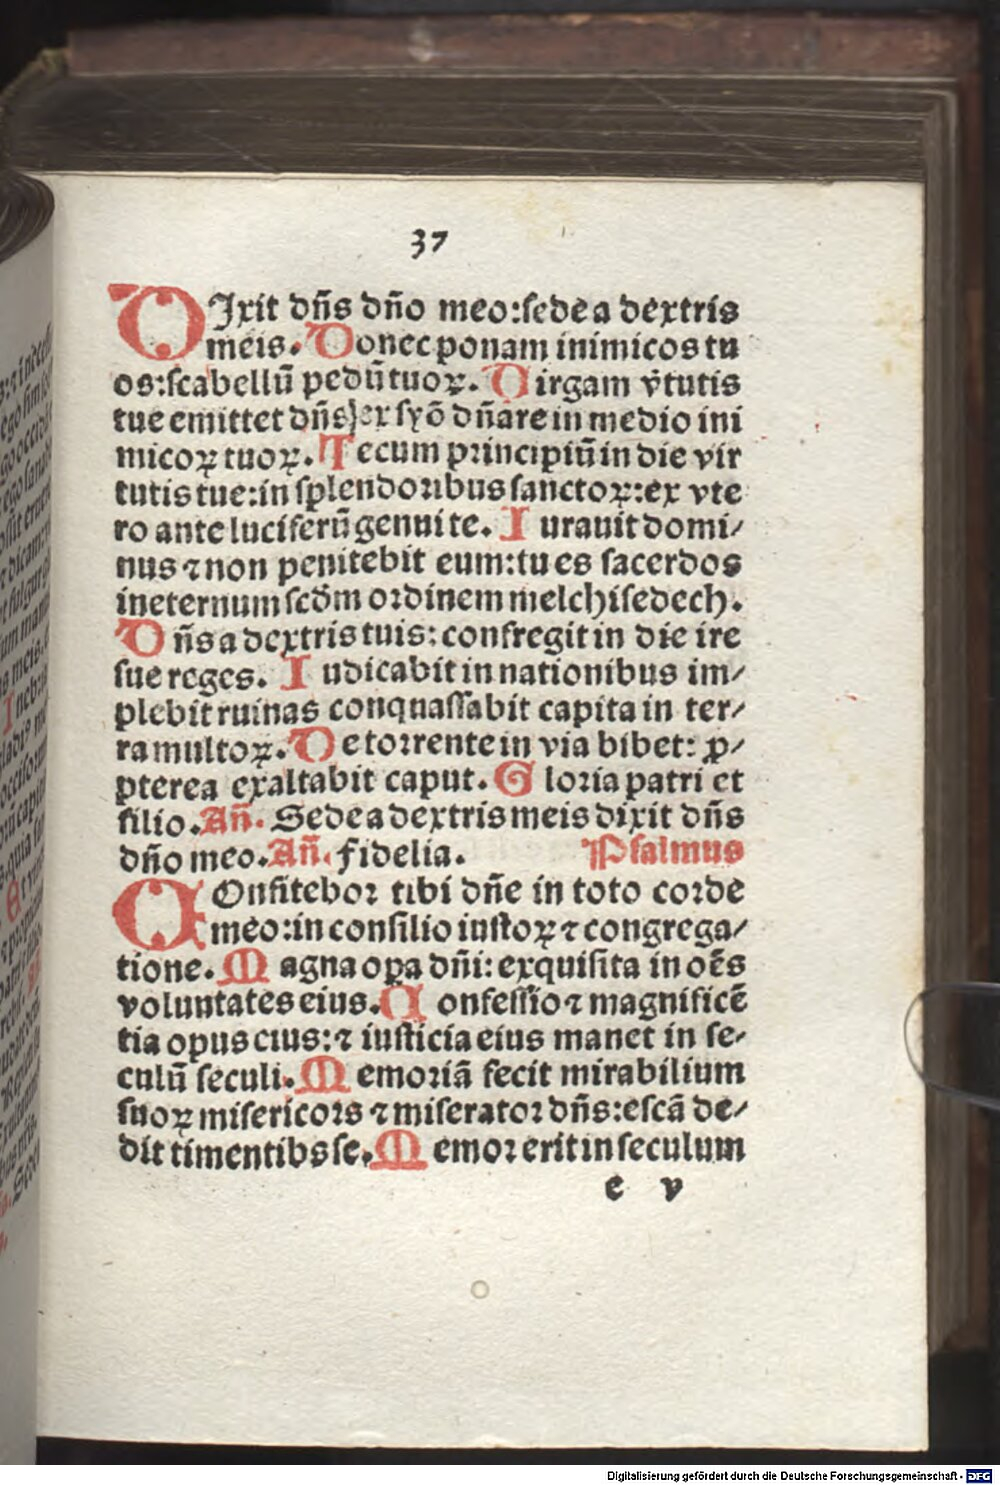 37
DIxit dn̄s dn̄o meo:sede a dextris
meis. Donec ponam inimicos tu
os:scabellū pedū tuoꝝ. Uirgam v̓tutis
tue emittet dn̄s ex syō dn̄are in medio ini
micoꝝ tuoꝝ. Tecum principiū in die vir
tutis tue:in splendoribus sanctoꝝ:ex vte
ro ante luciferū genui te. Iurauit domi/
nus ⁊ non penitebit eum:tu es sacerdos
in eternum scd̄m ordinem melchisedech.
Dn̄s a dextris tuis:confregit in die ire
sue reges. Iudicabit in nationibus im/
plebit ruinas conquassabit capita in ter/
ra multoꝝ. De torrente in via bibet: ꝓ/
pterea exaltabit caput. Gloria patri et
filio. An̄. Sede a dextris meis dixit dn̄s
dn̄o meo. An̄. Fidelia. Psalmus
COnfitebor tibi dn̄e in toto corde
meo:in consilio iustoꝝ ⁊ congrega/
tione. Magna oꝑa dn̄i: exquisita in oēs
voluntates eius. Confessio ⁊ magnificē
tia opus eius:⁊ iusticia eius manet in se/
culū seculi. Memoriā fecit mirabilium
suoꝝ misericors ⁊ miserator dn̄s:escā de/
dit timentibs se. Memor erit in seculum
e v
Digitalisierung gefördert durch die Deutsche Forschungsgemeinschaft - DFG